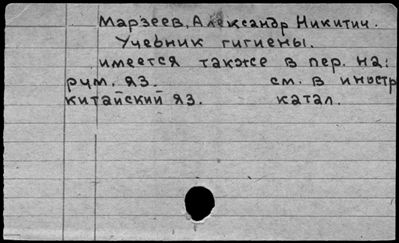 Марзеев, Александр Никитич.
Учебник гигиены.
имеется также в пер. на:
рум. яз. см. в иностр
китайский яз. катал.